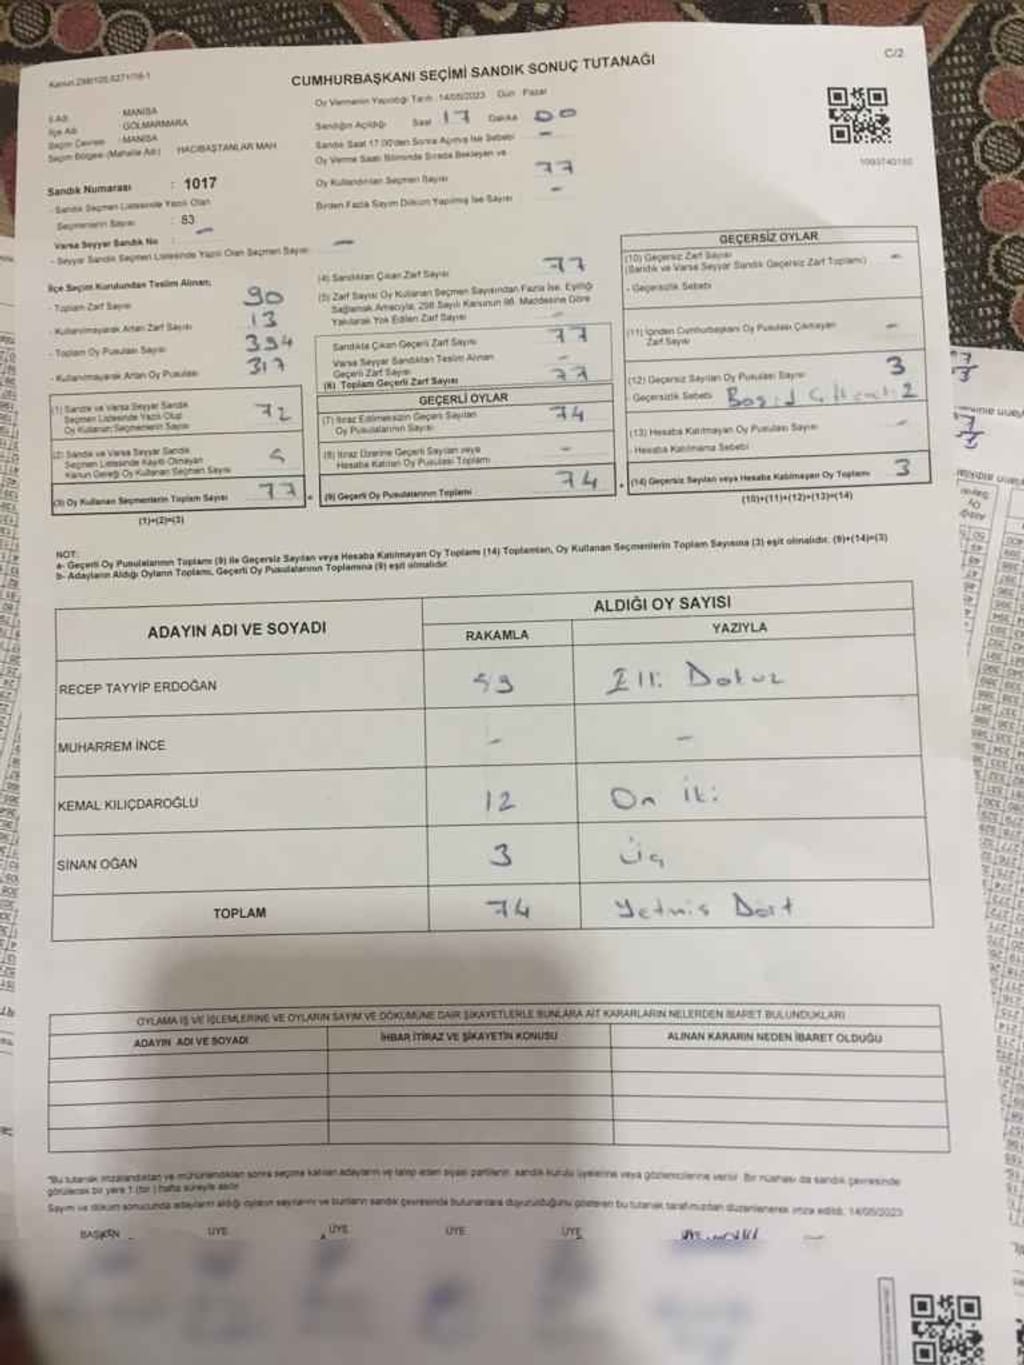 Kanun 298/105,6271/16-1
C/2
CUMHURBAŞKANI SEÇİMİ SANDIK SONUÇ TUTANAĞI
İl Adı : MANİSA
İlçe Adı : GÖLMARMARA
Seçim Çevresi : MANİSA
Seçim Bölgesi (Mahalle Adı) HACIBAŞTANLAR MAH
Sandık Numarası : 1017
- Sandık Seçmen Listesinde Yazılı Olan
Seçmenlerin Sayısı : 83
Varsa Seyyar Sandık No : -
- Seyyar Sandık Seçmen Listesinde Yazılı Olan Seçmen Sayısı -
Oy Vermenin Yapıldığı Tarih :14/05/2023 Gün : Pazar
Sandığın Açıldığı Saat 17 Dakika 00
Sandık Saat 17.00'den Sonra Açılmış İse Sebebi -
Oy Verme Saati Bitiminde Sırada Bekleyen ve
Oy Kullandırılan Seçmen Sayısı 77
Birden Fazla Sayım Döküm Yapılmış İse Sayısı -
1093740160
İlçe Seçim Kurulundan Teslim Alınan;
- Toplam Zarf Sayısı 90
- Kullanılmayarak Artan Zarf Sayısı 13
- Toplam Oy Pusulası Sayısı 394
- Kullanılmayarak Artan Oy Pusulası 317
(1) Sandık ve Varsa Seyyar Sandık
Seçmen Listesinde Yazılı Olup
Oy Kullanan Seçmenlerin Sayısı 72
(2) Sandık ve Varsa Seyyar Sandık
Seçmen Listesinde Kayıtlı Olmayan
Kanun Gereği Oy Kullanan Seçmen Sayısı 5
(3) Oy Kullanan Seçmenlerin Toplam Sayısı 77
(1)+(2)=(3)
(4) Sandıktan Çıkan Zarf Sayısı 77
(5) Zarf Sayısı Oy Kullanan Seçmen Sayısından Fazla İse, Eşitliği
Sağlamak Amacıyla, 298 Sayılı Kanunun 98. Maddesine Göre
Yakılarak Yok Edilen Zarf Sayısı -
Sandıkta Çıkan Geçerli Zarf Sayısı 77
Varsa Seyyar Sandıktan Teslim Alınan
Geçerli Zarf Sayısı -
(6) Toplam Geçerli Zarf Sayısı 77
GEÇERLİ OYLAR
(7) İtiraz Edilmeksizin Geçerli Sayılan
Oy Pusulalarının Sayısı 74
(8) İtiraz Üzerine Geçerli Sayılan veya
Hesaba Katılan Oy Pusulası Toplamı -
(9) Geçerli Oy Pusulalarının Toplamı 74
GEÇERSİZ OYLAR
(10) Geçersiz Zarf Sayısı -
(Sandık ve Varsa Seyyar Sandık Geçersiz Zarf Toplamı)
- Geçersizlik Sebebi
(11) İçinden Cumhurbaşkanı Oy Pusulası Çıkmayan
Zarf Sayısı -
(12) Geçersiz Sayılan Oy Pusulası Sayısı 3
- Geçersizlik Sebebi
(13) Hesaba Katılmayan Oy Pusulası Sayısı -
- Hesaba Katılmama Sebebi
(14) Geçersiz Sayılan veya Hesaba Katılmayan Oy Toplamı 3
(10)+(11)+(12)+(13)=(14)
NOT:
a- Geçerli Oy Pusulalarının Toplamı (9) ile Geçersiz Sayılan veya Hesaba Katılmayan Oy Toplamı (14) Toplamları, Oy Kullanan Seçmenlerin Toplam Sayısına (3) eşit olmalıdır. (9)+(14)=(3)
b- Adayların Aldığı Oyların Toplamı, Geçerli Oy Pusulalarının Toplamına (9) eşit olmalıdır.
ADAYIN ADI VE SOYADI
ALDIĞI OY SAYISI
RAKAMLA YAZIYLA
RECEP TAYYİP ERDOĞAN 59 Elli Dokuz
MUHARREM İNCE - -
KEMAL KILIÇDAROĞLU 12 On iki
SİNAN OĞAN 3 Üç
TOPLAM 74 Yetmiş Dört
OYLAMA İŞ VE İŞLEMLERİNE VE OYLARIN SAYIM VE DÖKÜMÜNE DAİR ŞİKAYETLERLE BUNLARA AİT KARARLARIN NELERDEN İBARET BULUNDUKLARI
ADAYIN ADI VE SOYADI İHBAR İTİRAZ VE ŞİKAYETİN KONUSU ALINAN KARARIN NEDEN İBARET OLDUĞU
*Bu tutanak imzalandıktan ve mühürlendikten sonra seçime katılan adayların ve talep eden siyasi partilerin sandık kurulu üyelerine veya gözlemcilerine verilir. Bir nüshası da sandık çevresinde
görülecek bir yere 1 (bir) hafta süreyle asılır.
Sayım ve döküm sonucunda adayların aldığı oyların sayılarını ve bunların sandık çevresinde bulunanlara duyurulduğunu gösteren bu tutanak tarafımızdan düzenlenerek imza edildi. 14/05/2023
BAŞKAN ÜYE ÜYE ÜYE ÜYE